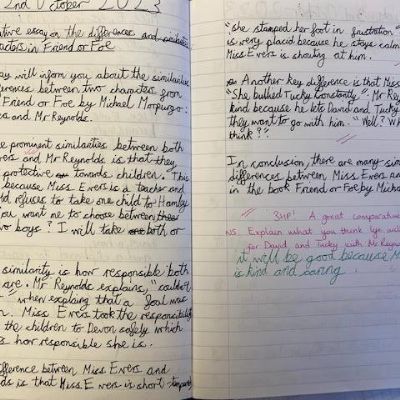 2nd October 2023
ative essay on the differences and
acters in Friend or Foe
ay will inform you about the similarities
erences between two characters from
Friend or Foe by Michael Morpurgo:
ers and Mr Reynolds.
prominent similarities between both
ers and Mr Reynolds is that they
protective towards children. This
because Miss Evers is a teacher and
refuses to take one child to
you want me to choose between these
two boys? I will take both or
similarity is how responsible both
are. Mr Reynolds explains, "couldn't
" when explaing that a foal was
n. Miss Evers took the responsibility
the children to Devon safely which
s how responsible she is.
ifference between Miss Evers and
ds is that Miss Evers is short
"she stamped her foot in frustration"
is very placid because he stays calm
Miss Evers is shouting at him.
Another key difference is that Miss
"She bullied Tucky constantly". Mr Rey
kind because he lets David and Tucky
they want to go with him. "Well? Wh
think?"
In conclusion, there are many sim
differences between Miss Evers an
in the book Friend or Foe by Micha
3HP! A great comparative
NS. Explain what you think life will
for David and Tucky with Mr Reyno
it will be good because M
is kind and caring.